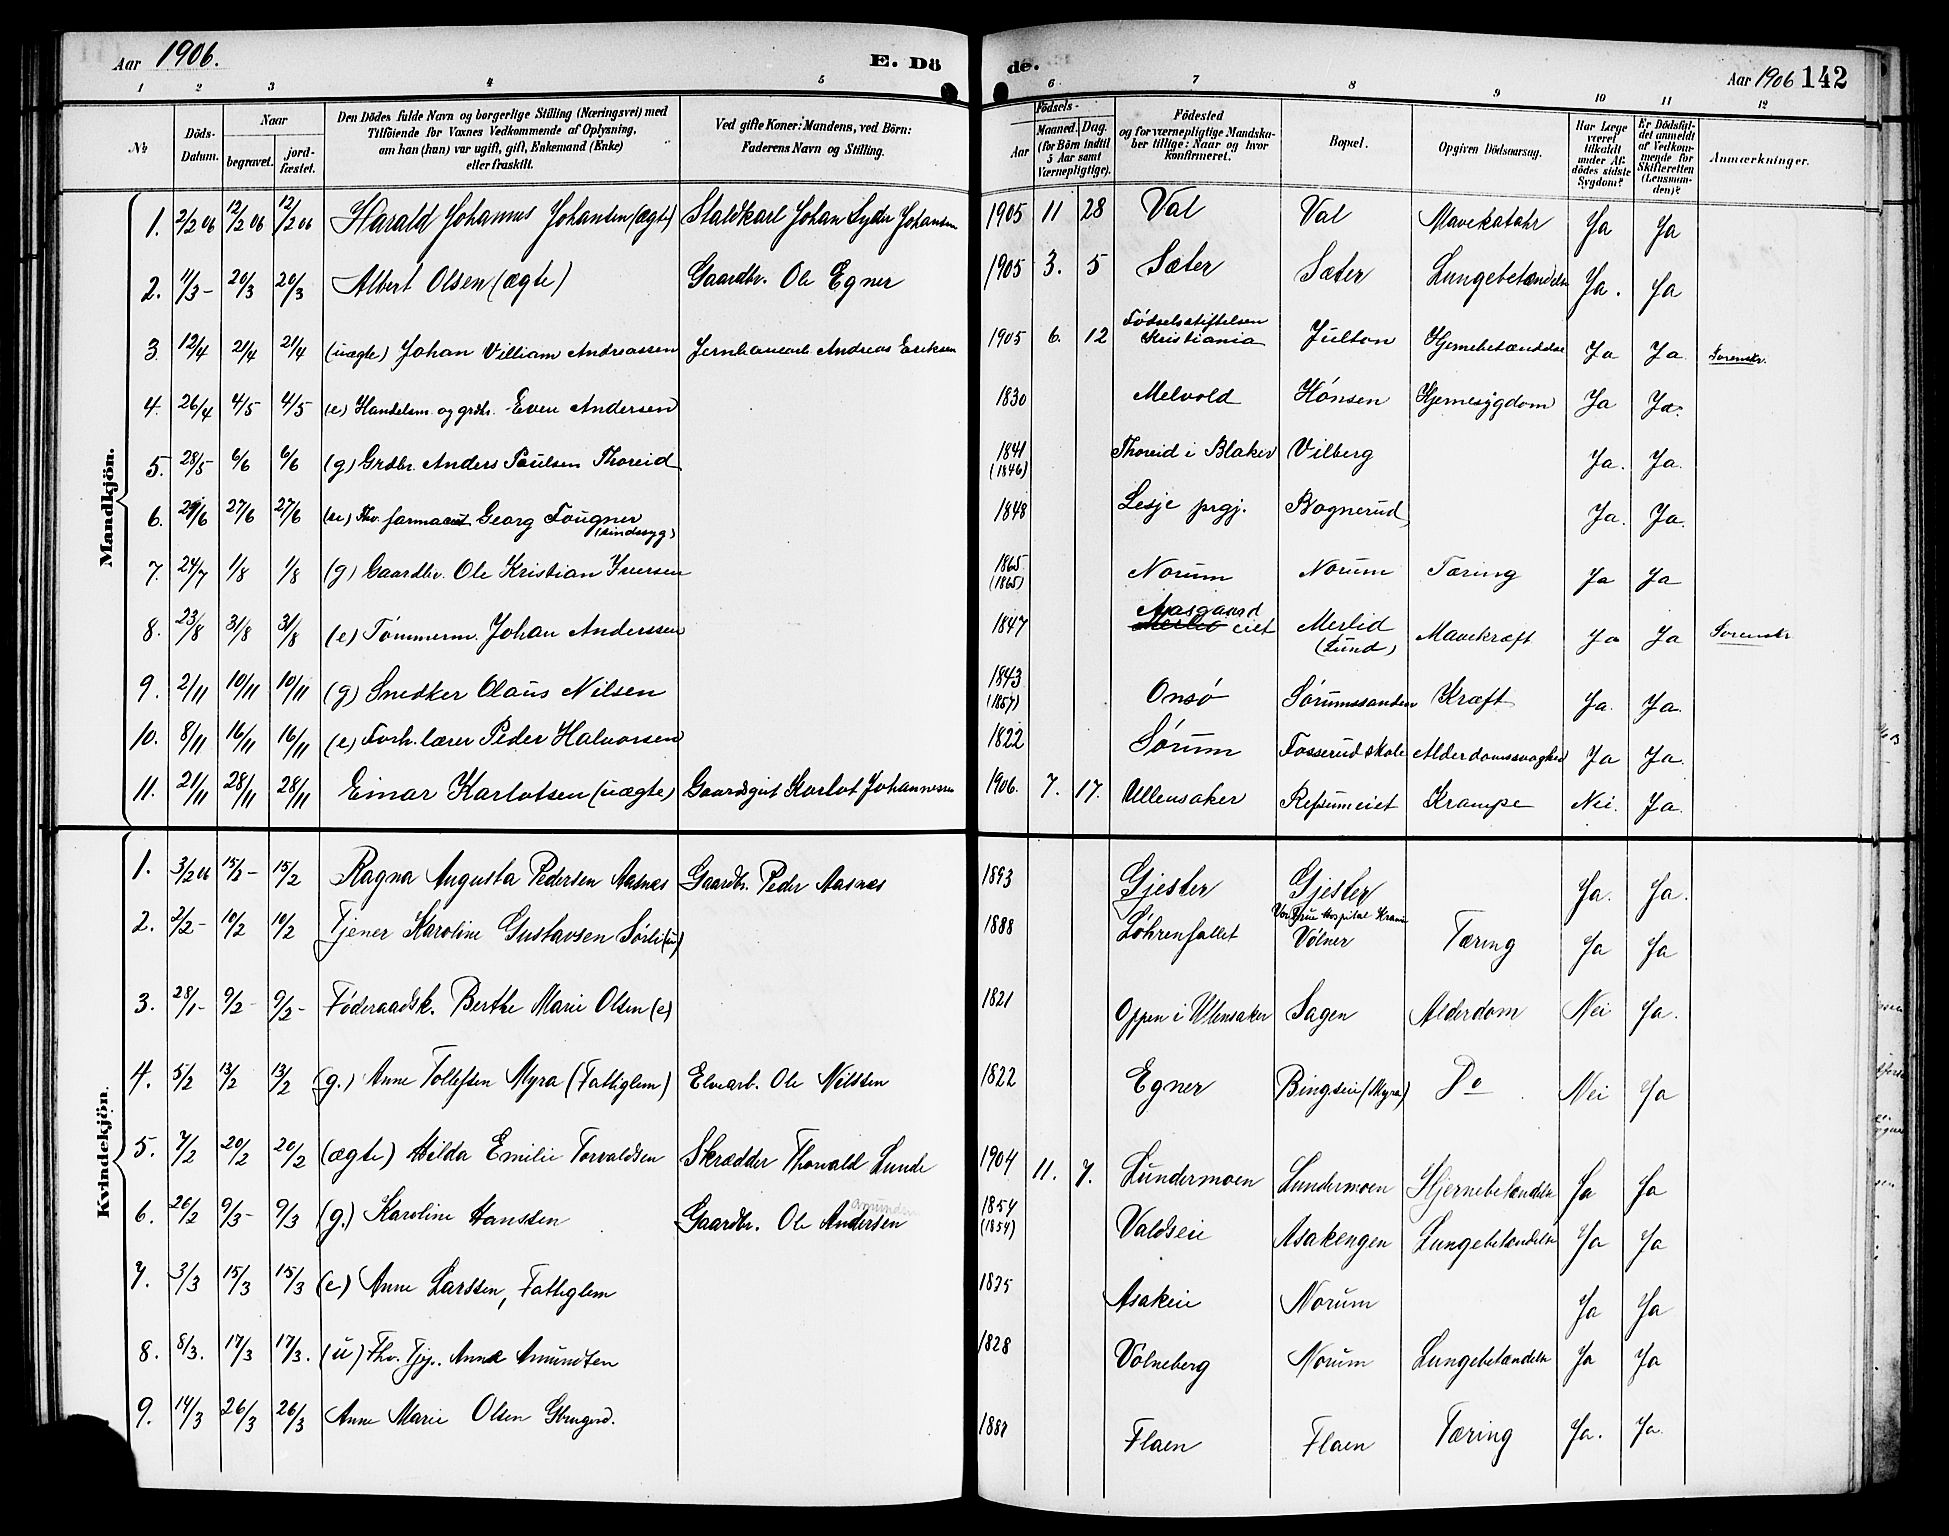 Aar 1906. E. Dö
de. Aar 1906 142
1 2 3 4 5 6 7 8 9 10 11 12
No Döds-Datum. Naar begravet. jordfæstet. Den Dödes fulde Navn og borgerlige Stilling (Næringsvei) med Tilföiende for Voxnes Vedkommende af Oplysning, om han (hun) var ugift, gift, Enkemand (Enke) eller fraskilt. Ved gifte Koner: Mandens, ved Börn: Faderens Navn og Stilling. Födsels- Aar Maaned. Dag. (for Börn indtil 5 Aar samt Værnepligtige). Födested og for værnepligtige Mandskaber tillige: Naar og hvor konfirmeret. Bopæl. Opgiven Dödsaarsag. Har Læge været tilkaldt under Afdödes sidste Sygdom? Er Dödsfaldet anmeldt af Vedkommende for Skifteretten (Lensmanden)? Anmærkninger.
Mandkjön.
1. 2/2 06 12/2 06 12/2 06 Harald Johannes Johansen (ægte) Staldkarl Johan Syder Johansen 1905 11 28 Val Val Mavekatahr Ja Ja
2. 11/3 - 20/3 20/3 Albert Olsen (ægte) Gaardbr. Ole Egner 1905 3. 5 Sæter Sæter Lungebetændelse Ja. Ja
3 12/4 21/4 21/4 (uægte) Johan Villiam Andreassen Jernbanearb. Andreas Eriksen 1905 6. 12 Fødselsstiftelsen Kristiania Julton Hjernebetændelse Ja Ja. Sorenskr.
4. 26/4 4/5 4/5 (e) Handelsm. og grdbr. Even Andersen 1830 Melvold Hønsen Hjernesygdom Ja Ja.
5. 28/5 6/6 6/6 (g) Grdbr. Anders Paulsen Thoreid 1841 (1846) Thoreid i Blaker Vilberg Ja. Ja.
6. 6 27/6 27/6 fhv. farmaceut Georg Fougner (sindssyg) 1848 Lesje prgj. Bognerud Ja. Ja.
7. 24/7 1/8 1/8 (g) Gaardbr. Ole Kristian Iversen 1865. (1865) Norum Norum Tæring Ja Ja
8. 23/8 31/8 31/8 (e) Tømmerm. Johan Anderssen 1847 Aasgaard eiet Merlid (Lund) Mavekræft Ja Ja Sorenskr
9. 2/11 10/11 10/11 (g) Snedker Olaus Nilsen 1843 (1857) Onsø Sørumssanden Kræft Ja. Ja.
10. 8/11 16/11 16/11 (e) Forh. lærer Peder Halvorsen 1822 Sørum Fosserud skole Alderdomssvaghed Ja Ja.
11. 21/11 28/11 28/11 Einar Karlotsen (uægte) Gaardsgut Karlot Johannesen 1906. 7. 17. Ullensaker Refsumeiet Krampe Nei. Ja.
Kvindekjön.
1. 3/2 06 15/2 - 15/2 Ragna Augusta Pedersen Aasnæs Gaardbr. Peder Aasnæs 1893 Gjester Gjester Ja. Ja.
2. 2/2 - 10/2 10/2 Tjener Karoline Gustavsen Sørli (u) 1888 Løhrenfallet Vor Frue Hospital Krania Vølner Tæring Ja Ja
3. 28/1 - 9/2 - 9/2 - Føderaadsk. Berthe Marie Olsen (e) 1821 Oppen i Ullensaker Sagen Alderdom Nei Ja.
4. 5/2 13/2 13/2 (g.) Anne Tollefsen Myra (Fattiglem) Elvearb. Ole Nilssen 1822 Egner Bingseie (Myra) Do Nei Ja
5. 7/2 20/2 20/2 (ægte) Hilda Emilie Torvaldsen Skrædder Thorvald Lunde 1904 11. 7. Lundermoen Lundermoen Hjernebetændelse Ja Ja
6. 26/2 9/3 - 9/3 (g.) Karoline Hanssen Gaardbr. Ole Andersen Amundsen 1854 (1854) Valdseie Asakengen Lungebetændelse Ja Ja
7. 3/3 15/3 15/3 (e) Anne Larssen, Fattiglem 1825 Asakeie Norum Ja Ja
8. 8/3. 17/3 17/3. (u) Fhv. Tjej. Anne Amundsen 1828 Vølneberg Norum Lungebetændelse Ja Ja
9. 14/3 26/3 26/3 Anne Marie Olsen 1887 Flaen Flaen Tæring Ja. Ja.